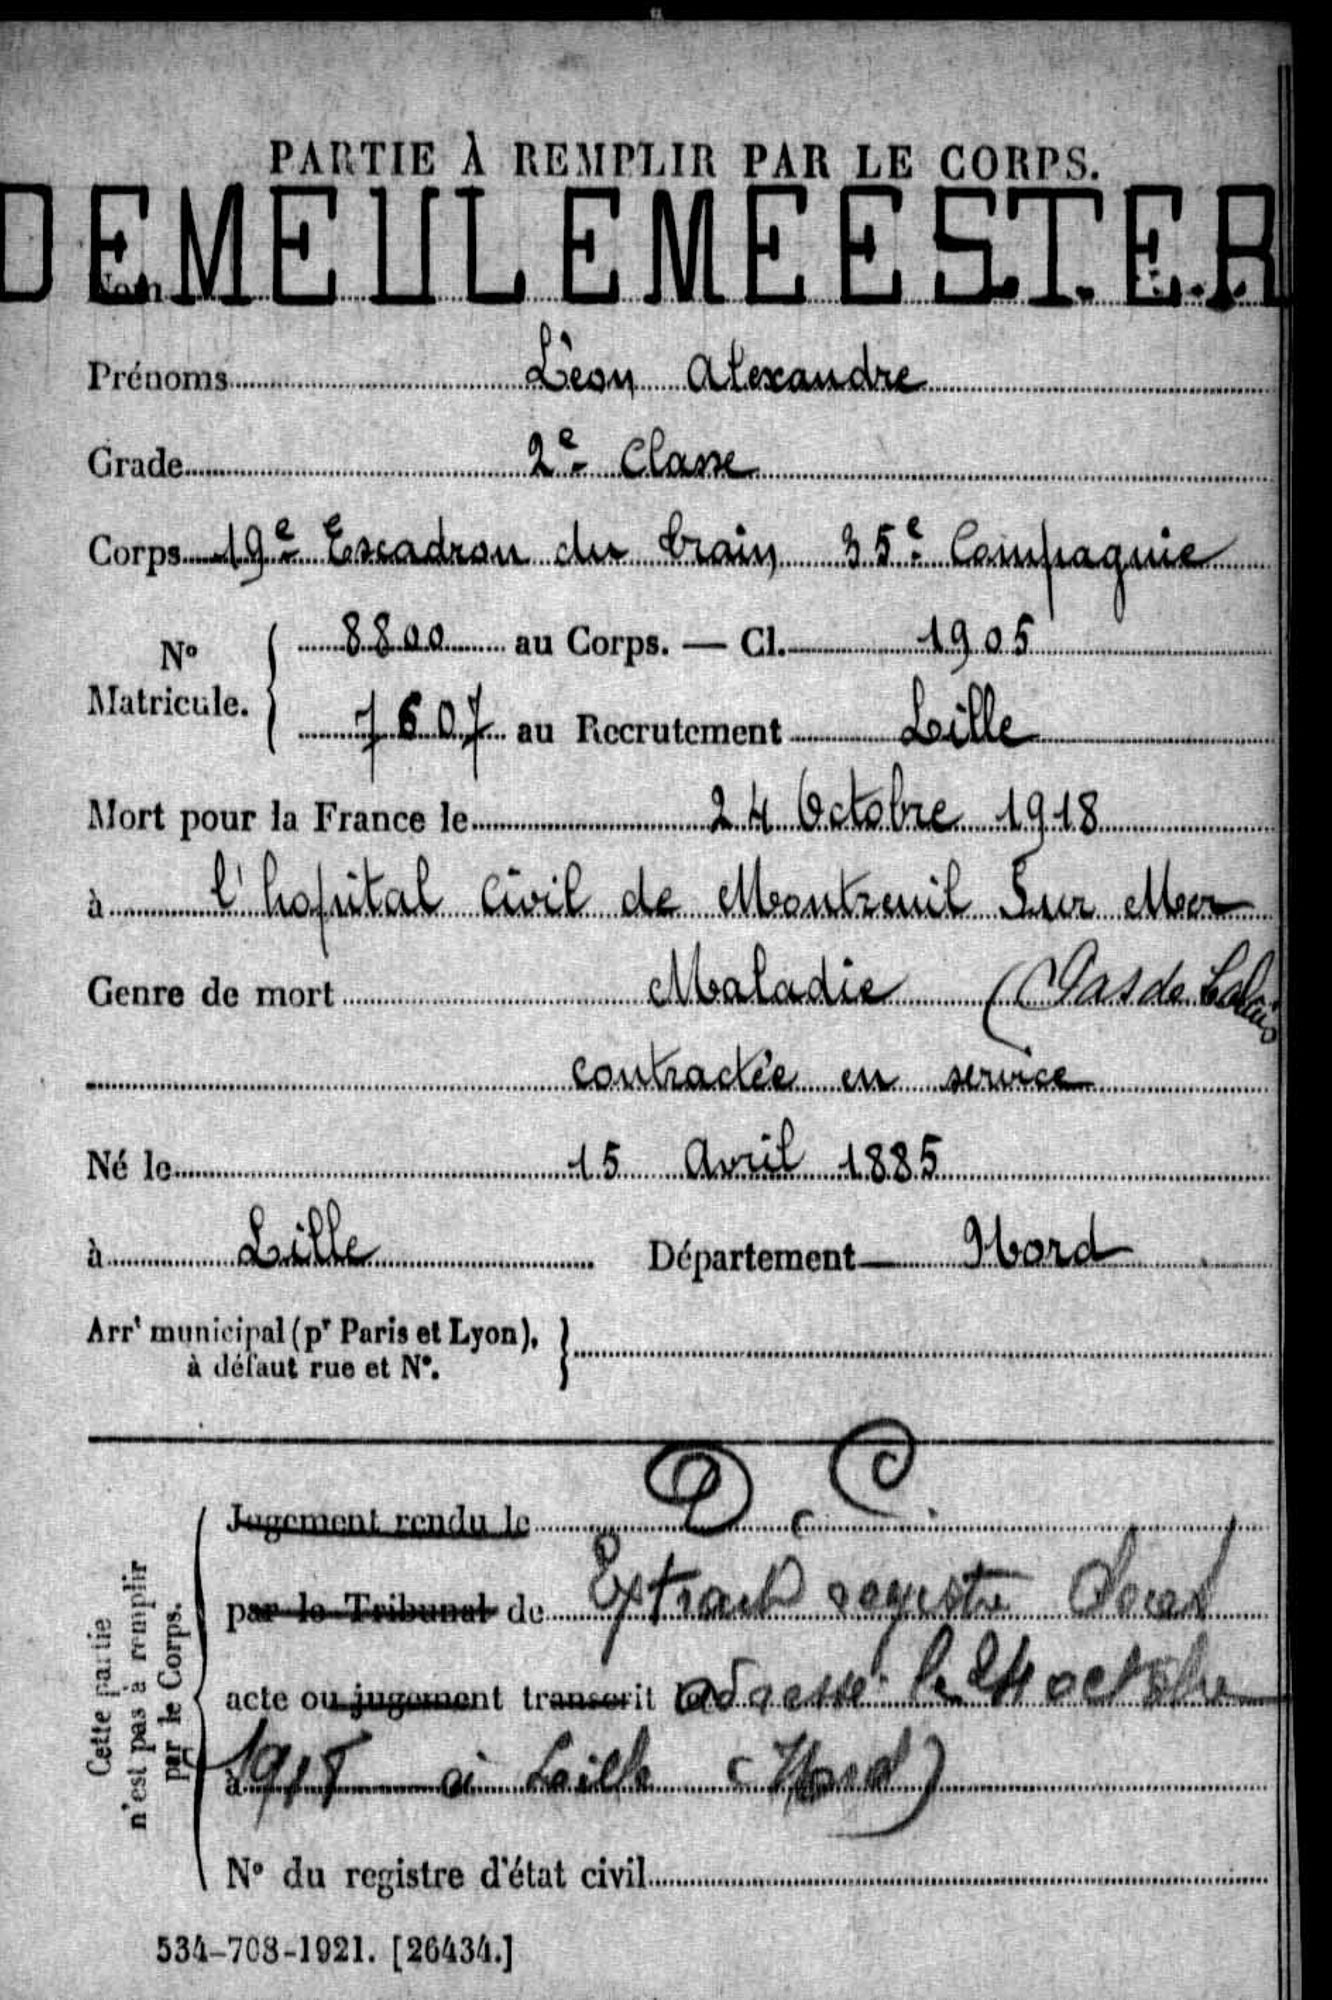 PARTIE À REMPLIR PAR LE CORPS.
Nom DEMEULEMEESTER
Prénoms Léon Alexandre
Grade 2e Classe
Corps 19e Escadron du train 35e Compagnie
N° Matricule. { 8800 au Corps. — Cl. 1905
7607 au Recrutement Lille
Mort pour la France le 24 Octobre 1918
à l'hopital civil de Montreuil Sur Mer
Genre de mort Maladie (Pas de Calais
contractée en service
Né le 15 Avril 1885
à Lille Département Nord
Arrt municipal (pr Paris et Lyon), à défaut rue et N°. }
D. C.
Cette partie n'est pas à remplir par le Corps.
Jugement rendu le
par le Tribunal de Extrait registre
acte ou jugement transcrit le adressé le 24 octobre
à 1918 à Lille (Nord)
N° du registre d'état civil
534-708-1921. [26434.]